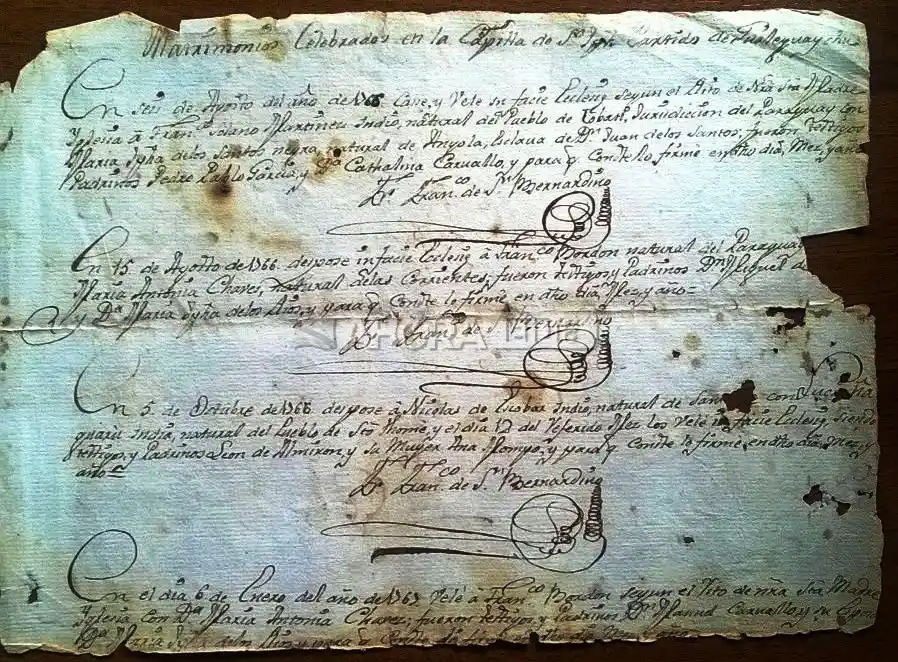 Matrimonios Celebrados en la Capilla de Sn Jph Partido de Gualeguaychu
En seis de Agosto del año de 1766 Case, y Velè in facie Eclesię segun el Rito de Nrâ Sta Madre
Yglesia à Franco Solano Martinez Indio, natural del Pueblo de Tobati, Jurisdicion del Paraguay con
Maria Ignâ delos Santos negra, natural de Angola, Esclava de Dn Juan delos Santos; fueron testigos
Padrinos Pedro Pablo Garcia, y Da Cathalina Carvallo, y para q. Conste lo firmè en dho dia, Mez, y año
Fr. Franco. de Sn Bernardino
En 15 de Agosto de 1766 despose in facie Eclesię à Franco Bordon natural del Paraguay
Maria Antonia Chaves, natural delas Corrientes; fueron testigos, y Padrinos Dn Miguel
y Da Maria Ignâ delos Rios, y para q. Conste lo firmè en dho dia Mez y año
AHORA
Fr. Franco. de Sn Bernardino
En 5 de Octubre de 1766 despose à Nicolas de Escobar Indio, natural de San con
Indiâ, natural del Pueblo de Sto Thome, y el dia 12 del referido Mez los Velè in facie Eclesię, siendo
testigos, y Padrinos Leon de Almiron, y su Muger Ana y para q. Conste lo firmè, en dho dia, Mez, y
año
Fr. Franco. de Sn Bernardino
En el dia 6 de Enero del año de 1767 Velè à Franco Bordon segun el Rito de nrâ Sta Madre
Yglesia con Da Maria Antonia Chavez; fueron testigos, y Padrinos Dn Manuel Carvallo, y su
Da Maria delos Rios, y para q. Conste lo